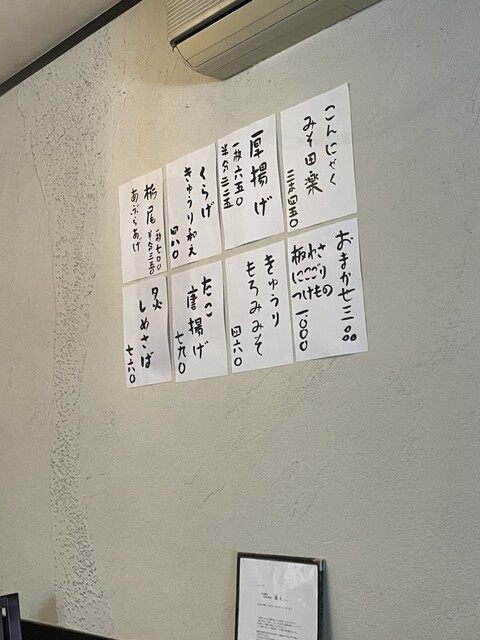 こんにゃく
みそ田楽
二本四五〇
厚揚げ
一枚六五〇
半分三二五
くらげ
きゅうり和え
四八〇
栃尾
一枚七〇〇
半分三五〇
あぶらあげ
おまかせ三品
板わさ
にこごり
つけもの
一、〇〇〇
きゅうり
もろみみそ
四六〇
たこ
唐揚げ
七九〇
炙
しめさば
七六〇